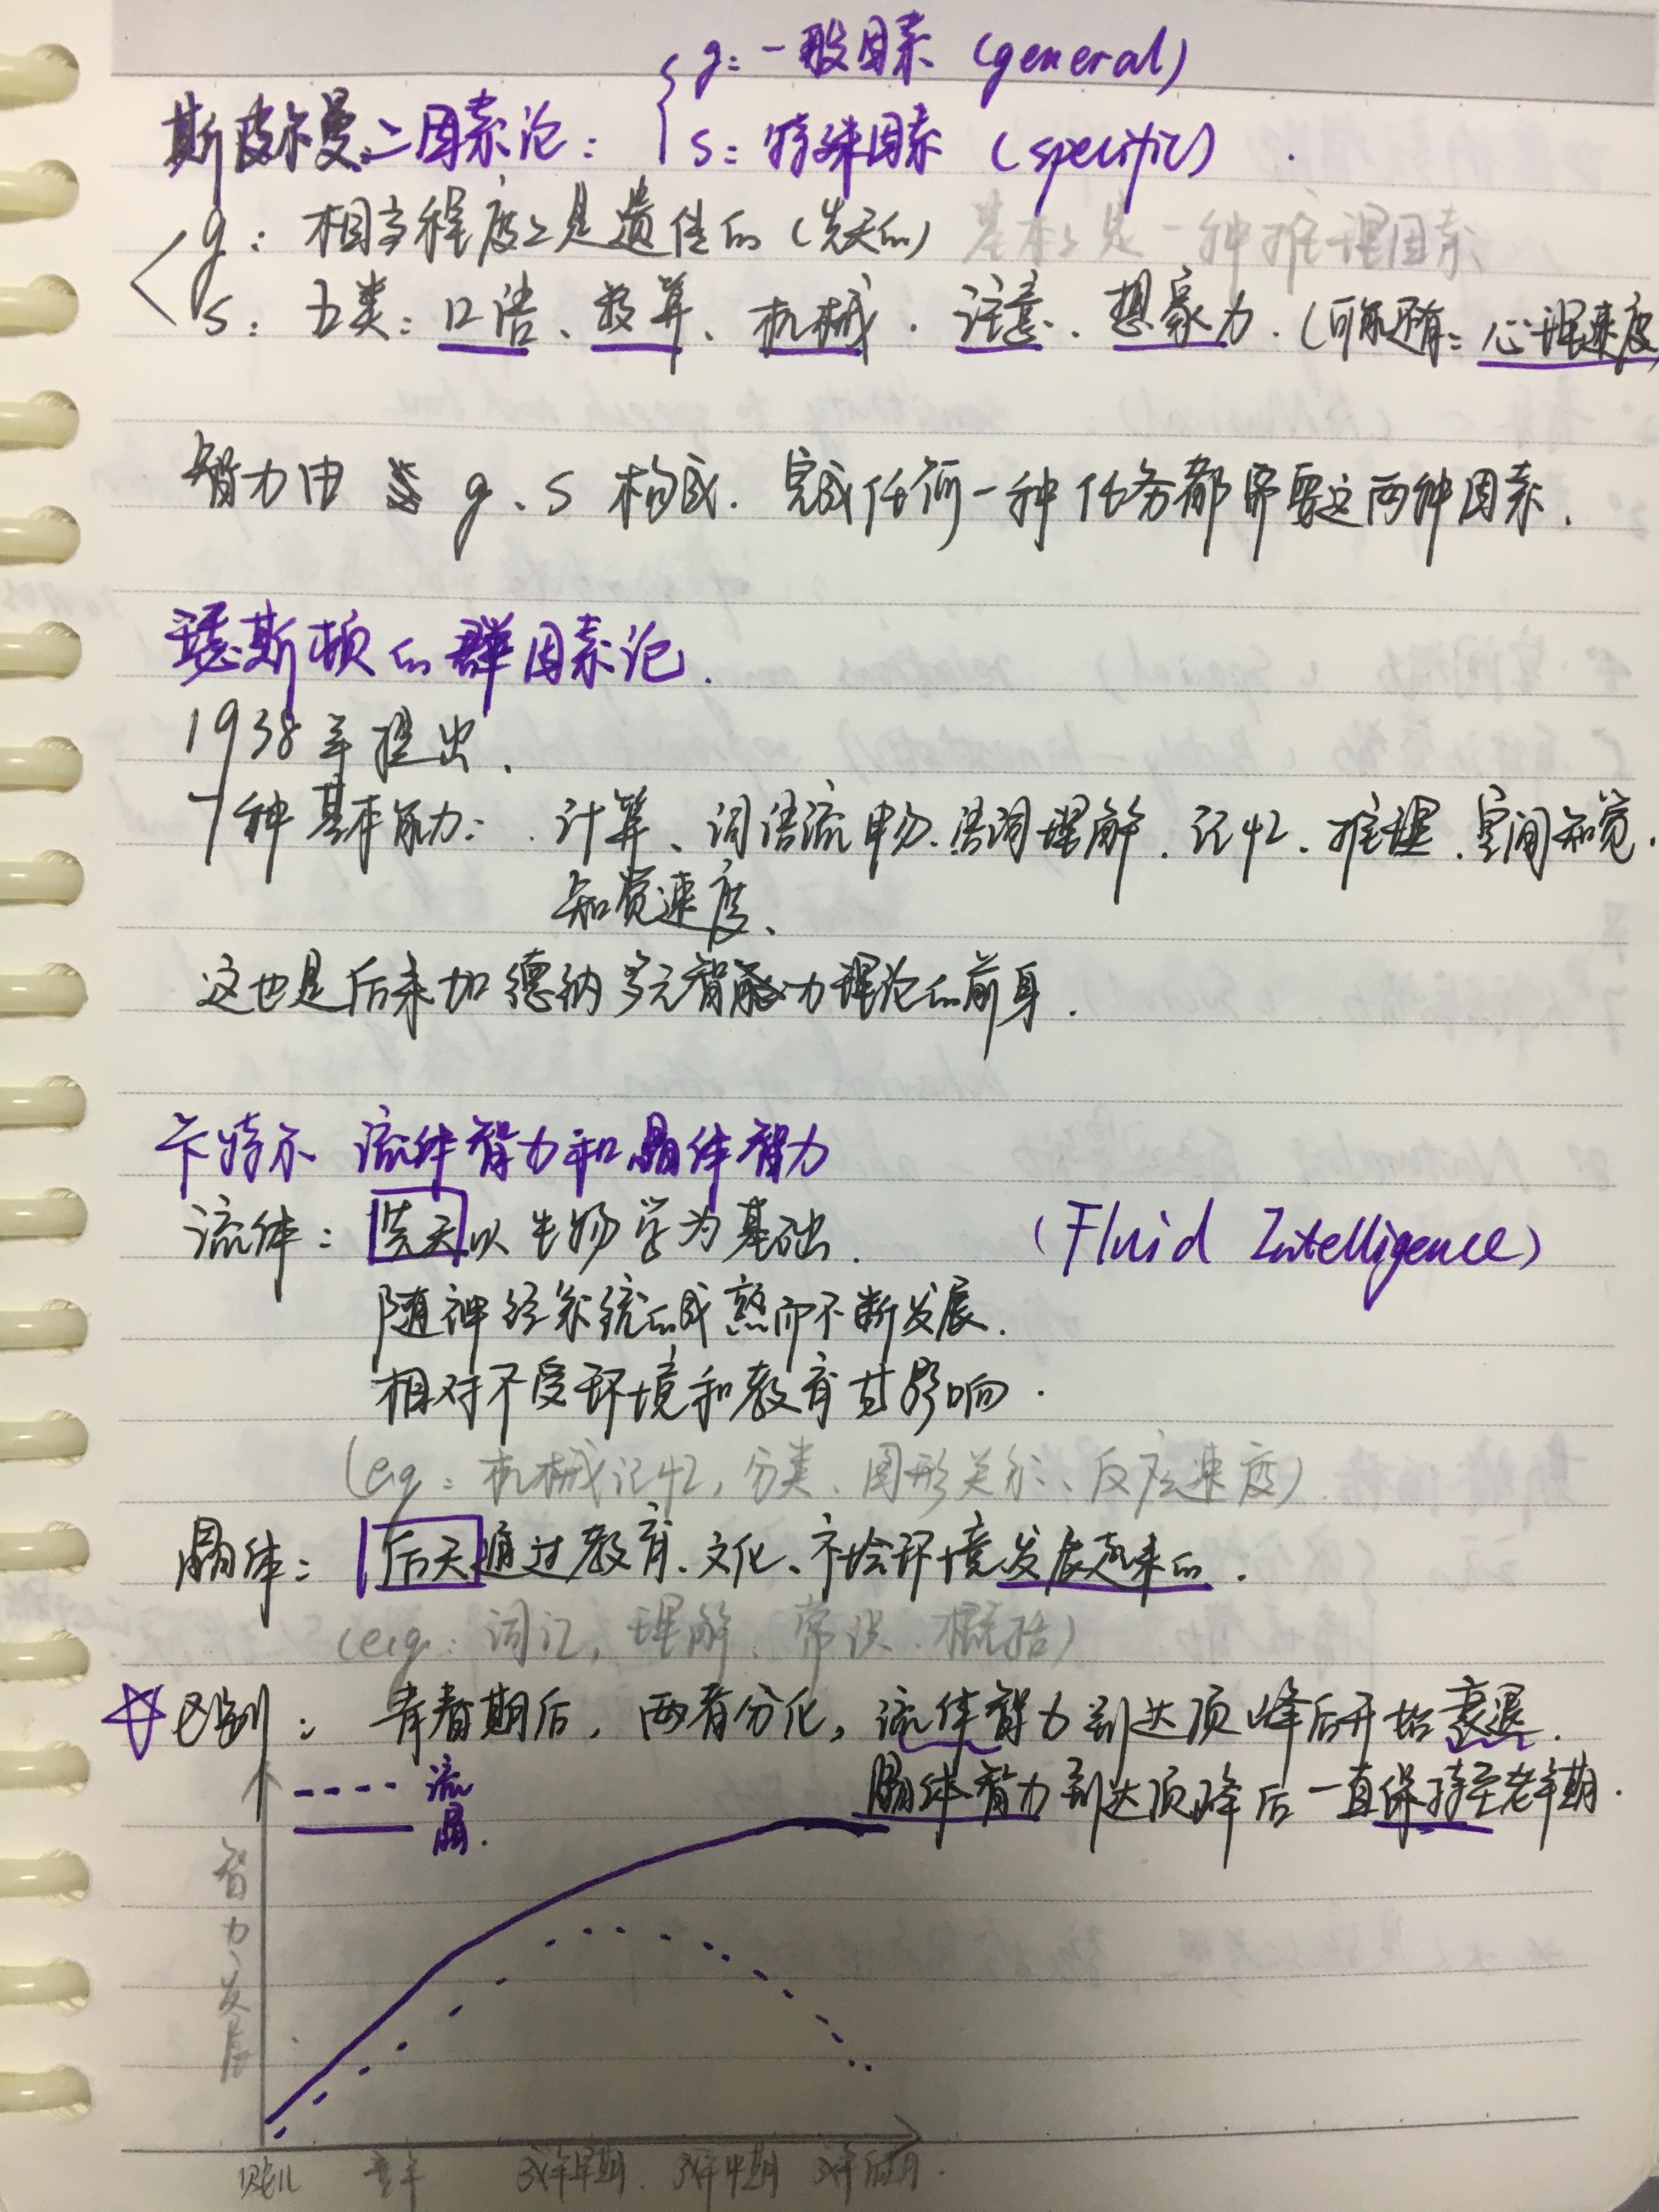 g: 一般因素 (general)
斯皮尔曼二因素论: s: 特殊因素 (specific)
g: 相当程度上是遗传的 (先天的) 基本上是一种推理因素
s: 五类: 口语、数算、机械、注意、想象力. (可能还有: 心理速度)
智力由 g、s 构成. 完成任何一种任务都需要这两种因素.
瑟斯顿的群因素论.
1938年提出.
7种基本能力: 计算、词语流畅、语词理解、记忆、推理、空间知觉.
知觉速度、
这也是后来加德纳多元智能力理论的前身.
卡特尔 流体智力和晶体智力
流体: 先天以生物学为基础. (Fluid Intelligence)
随神经系统的成熟而不断发展.
相对不受环境和教育其影响.
(e.g: 机械记忆, 分类、图形关系、反应速度)
晶体: 后天通过教育、文化、社会环境发展起来的.
(e.g: 词汇, 理解、常识、概括)
☆区别: 青春期后, 两者分化, 流体智力到达顶峰后开始衰退.
流 晶体智力到达顶峰后一直保持至老年期.
晶.
智力发展
婴儿 童年 成年早期. 成年中期 成年后期.